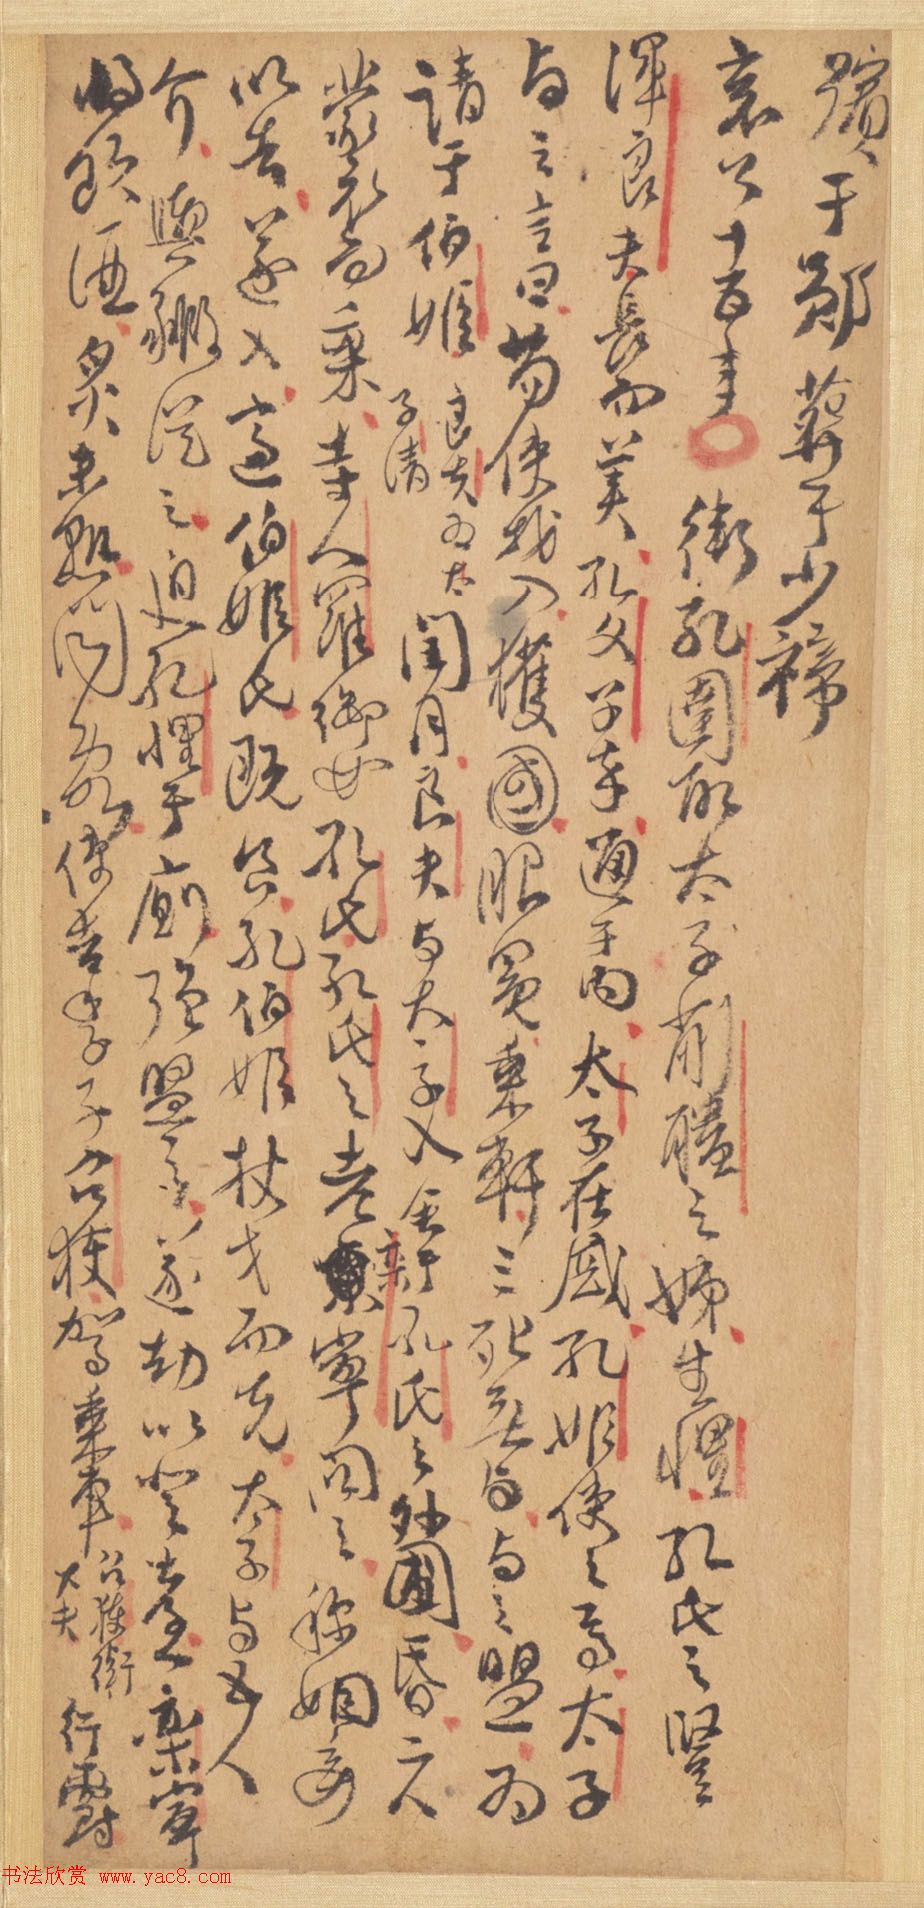 殯于鄖葬于少禘
哀公十五年衛孔圉取太子蒯聵之姊生悝孔氏之豎
渾良夫長而美孔文子卒通于內太子在戚孔姬使之焉太子
与之言曰苟使我入獲國服冕乘軒三死無与与之盟为
請于伯姬良夫为太子請閏月良夫与太子入舍孔氏之外圃昏二人
蒙衣而乘寺人羅御如孔氏孔氏之老欒寧問之称姻妾
以告遂入適伯姬氏既食孔伯姬杖戈而先太子与五人
介輿豭從之迫孔悝于廁强盟之遂劫以登臺欒寧
將飲酒炙未熟聞亂使告季子召獲駕乘車召獲衛大夫行爵
书法欣赏 www.yac8.com